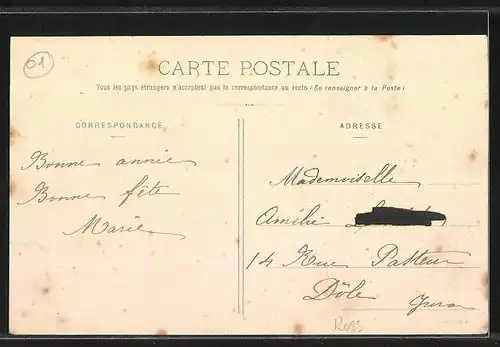 01
CARTE POSTALE
Tous les pays étrangers n'acceptent pas la correspondance au recto (Se renseigner à la Poste)
CORRESPONDANCE
Bonne année
Bonne fête
Marie
ADRESSE
Mademoiselle
Amélie
14 Rue Pasteur
Dôle Jura